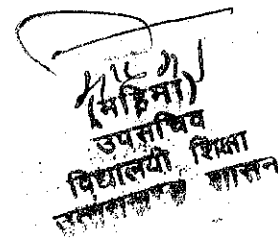 (महिमा)
उपसचिव
विद्यालयी शिक्षा
उत्तराखण्ड शासन